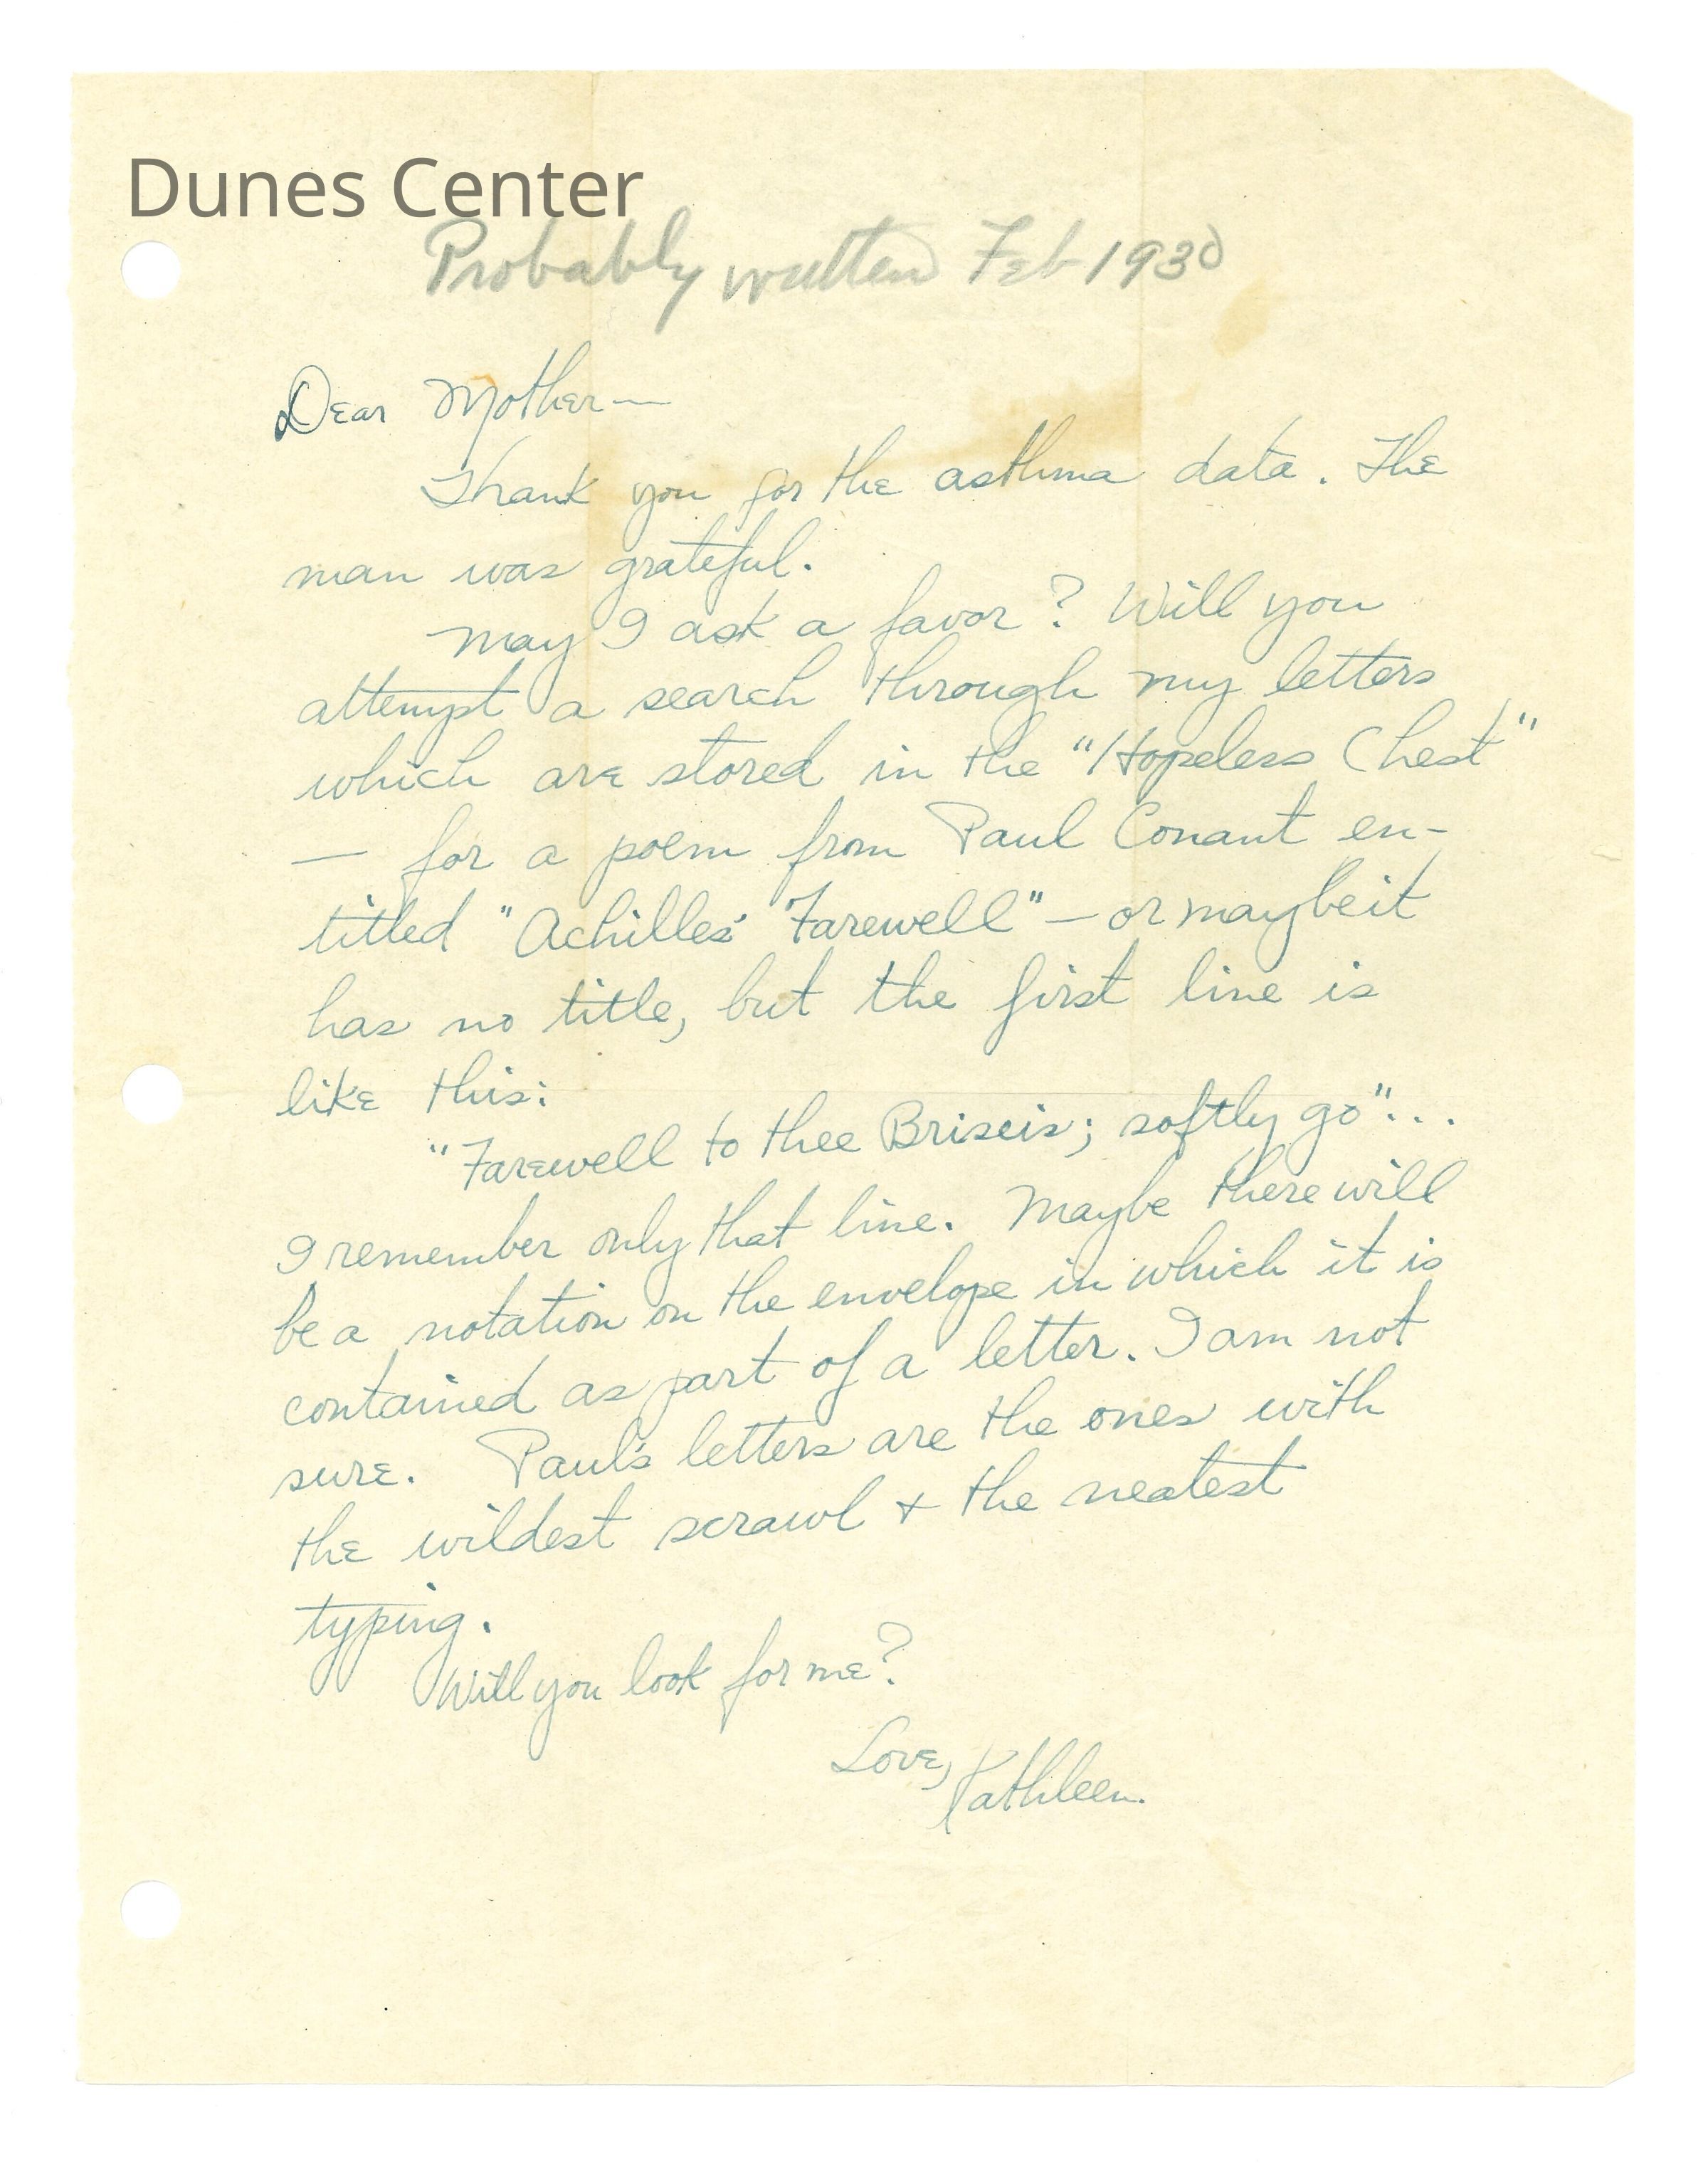 Dunes Center
Probably written Feb 1930
Dear Mother—
Thank you for the asthma data. The
man was grateful.
May I ask a favor? Will you
attempt a search through my letters
which are stored in the "Hopeless Chest"
— for a poem from Paul Conant en-
titled "Achilles' Farewell" — or maybe it
has no title, but the first line is
like this:
"Farewell to thee Briseis; softly go"...
I remember only that line. Maybe there will
be a notation on the envelope in which it is
contained as part of a letter. I am not
sure. Paul's letters are the ones with
the wildest scrawl + the neatest
typing.
Will you look for me?
Love,
Kathleen.